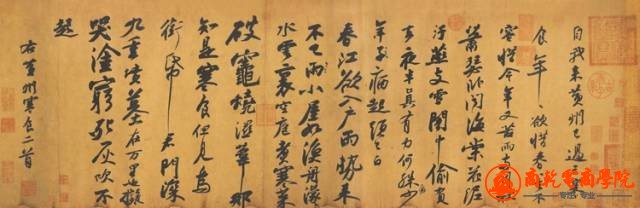 自我來黄州已過三寒
食年〃欲惜春春去不
容惜今年又苦雨兩月秋
蕭瑟卧聞海棠花泥
汙燕支雪闇中偷負
去夜半真有力何殊少
年子病起頭已白
春江欲入戶雨勢来
不已雨小屋如漁舟濛〃
水雲裏空庖煮寒菜
破竈燒濕葦那
知是寒食但見烏
銜帋君門深
九重墳墓在万里也擬
哭塗窮死灰吹不
起
右黄州寒食二首
商学院